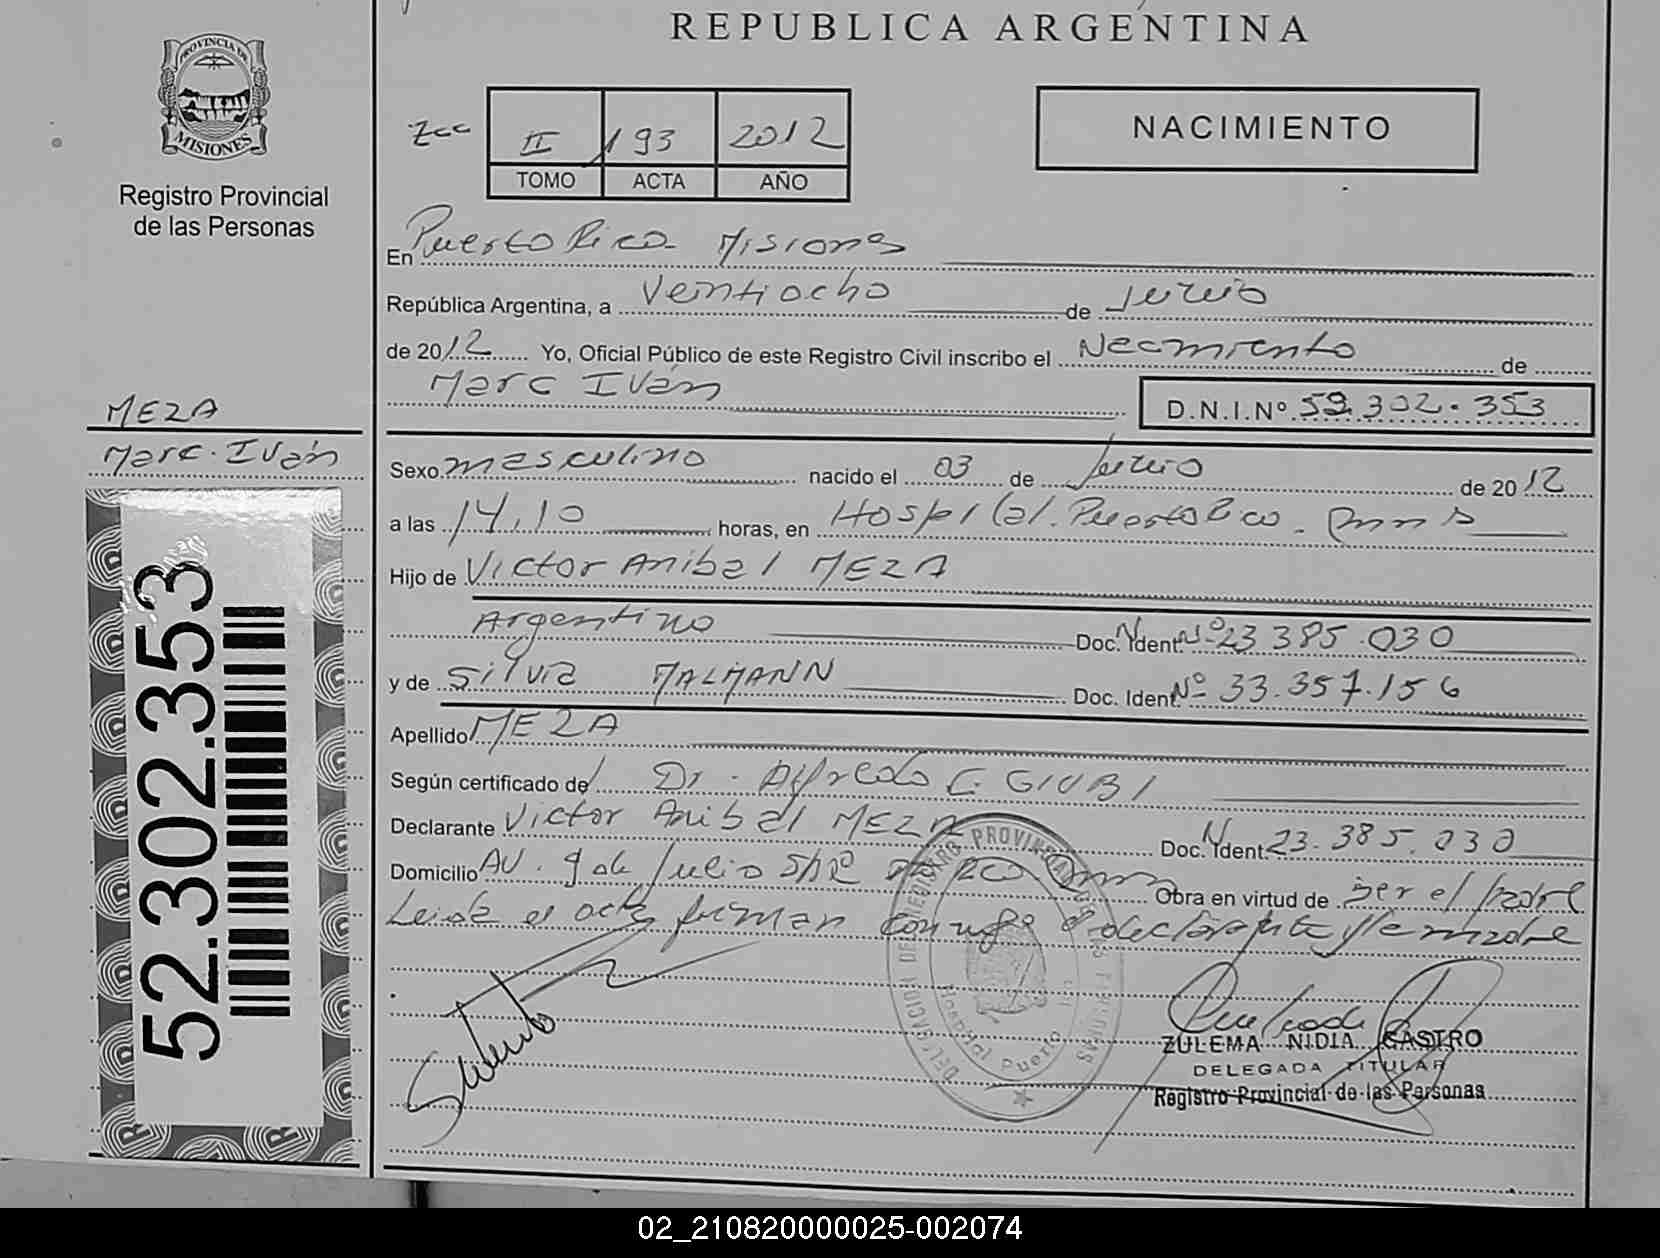 REPUBLICA ARGENTINA
PROVINCIA DE
MISIONES
Registro Provincial
de las Personas
II 193 2012
TOMO ACTA AÑO
NACIMIENTO
En Puerto Rico Misiones
República Argentina, a Veintiocho de Junio
de 2012 Yo, Oficial Público de este Registro Civil inscribo el Nacimiento de
Marc Iván
D.N.I.Nº 52.302.353
MEZA
Marc Iván
Sexo masculino nacido el 03 de Junio de 2012
a las 14,10 horas, en Hospital Puerto Rico
Hijo de Victor Anibal MEZA
Argentino Doc. Ident. Nº 23.385.030
y de Silvia MALMANN Doc. Ident. Nº 33.357.156
Apellido MEZA
Según certificado del Dr. Alfredo C. GIUBI
Declarante Victor Anibal MEZA Doc. Ident. 23.385.030
Domicilio AV. 9 de Julio S/Nº Obra en virtud de ser el padre
Leida el acta firman conmigo el declarante y la madre
52.302.353
Hospital Puerto
ZULEMA NIDIA CASTRO
DELEGADA TITULAR
Registro Provincial de las Personas
02_210820000025-002074